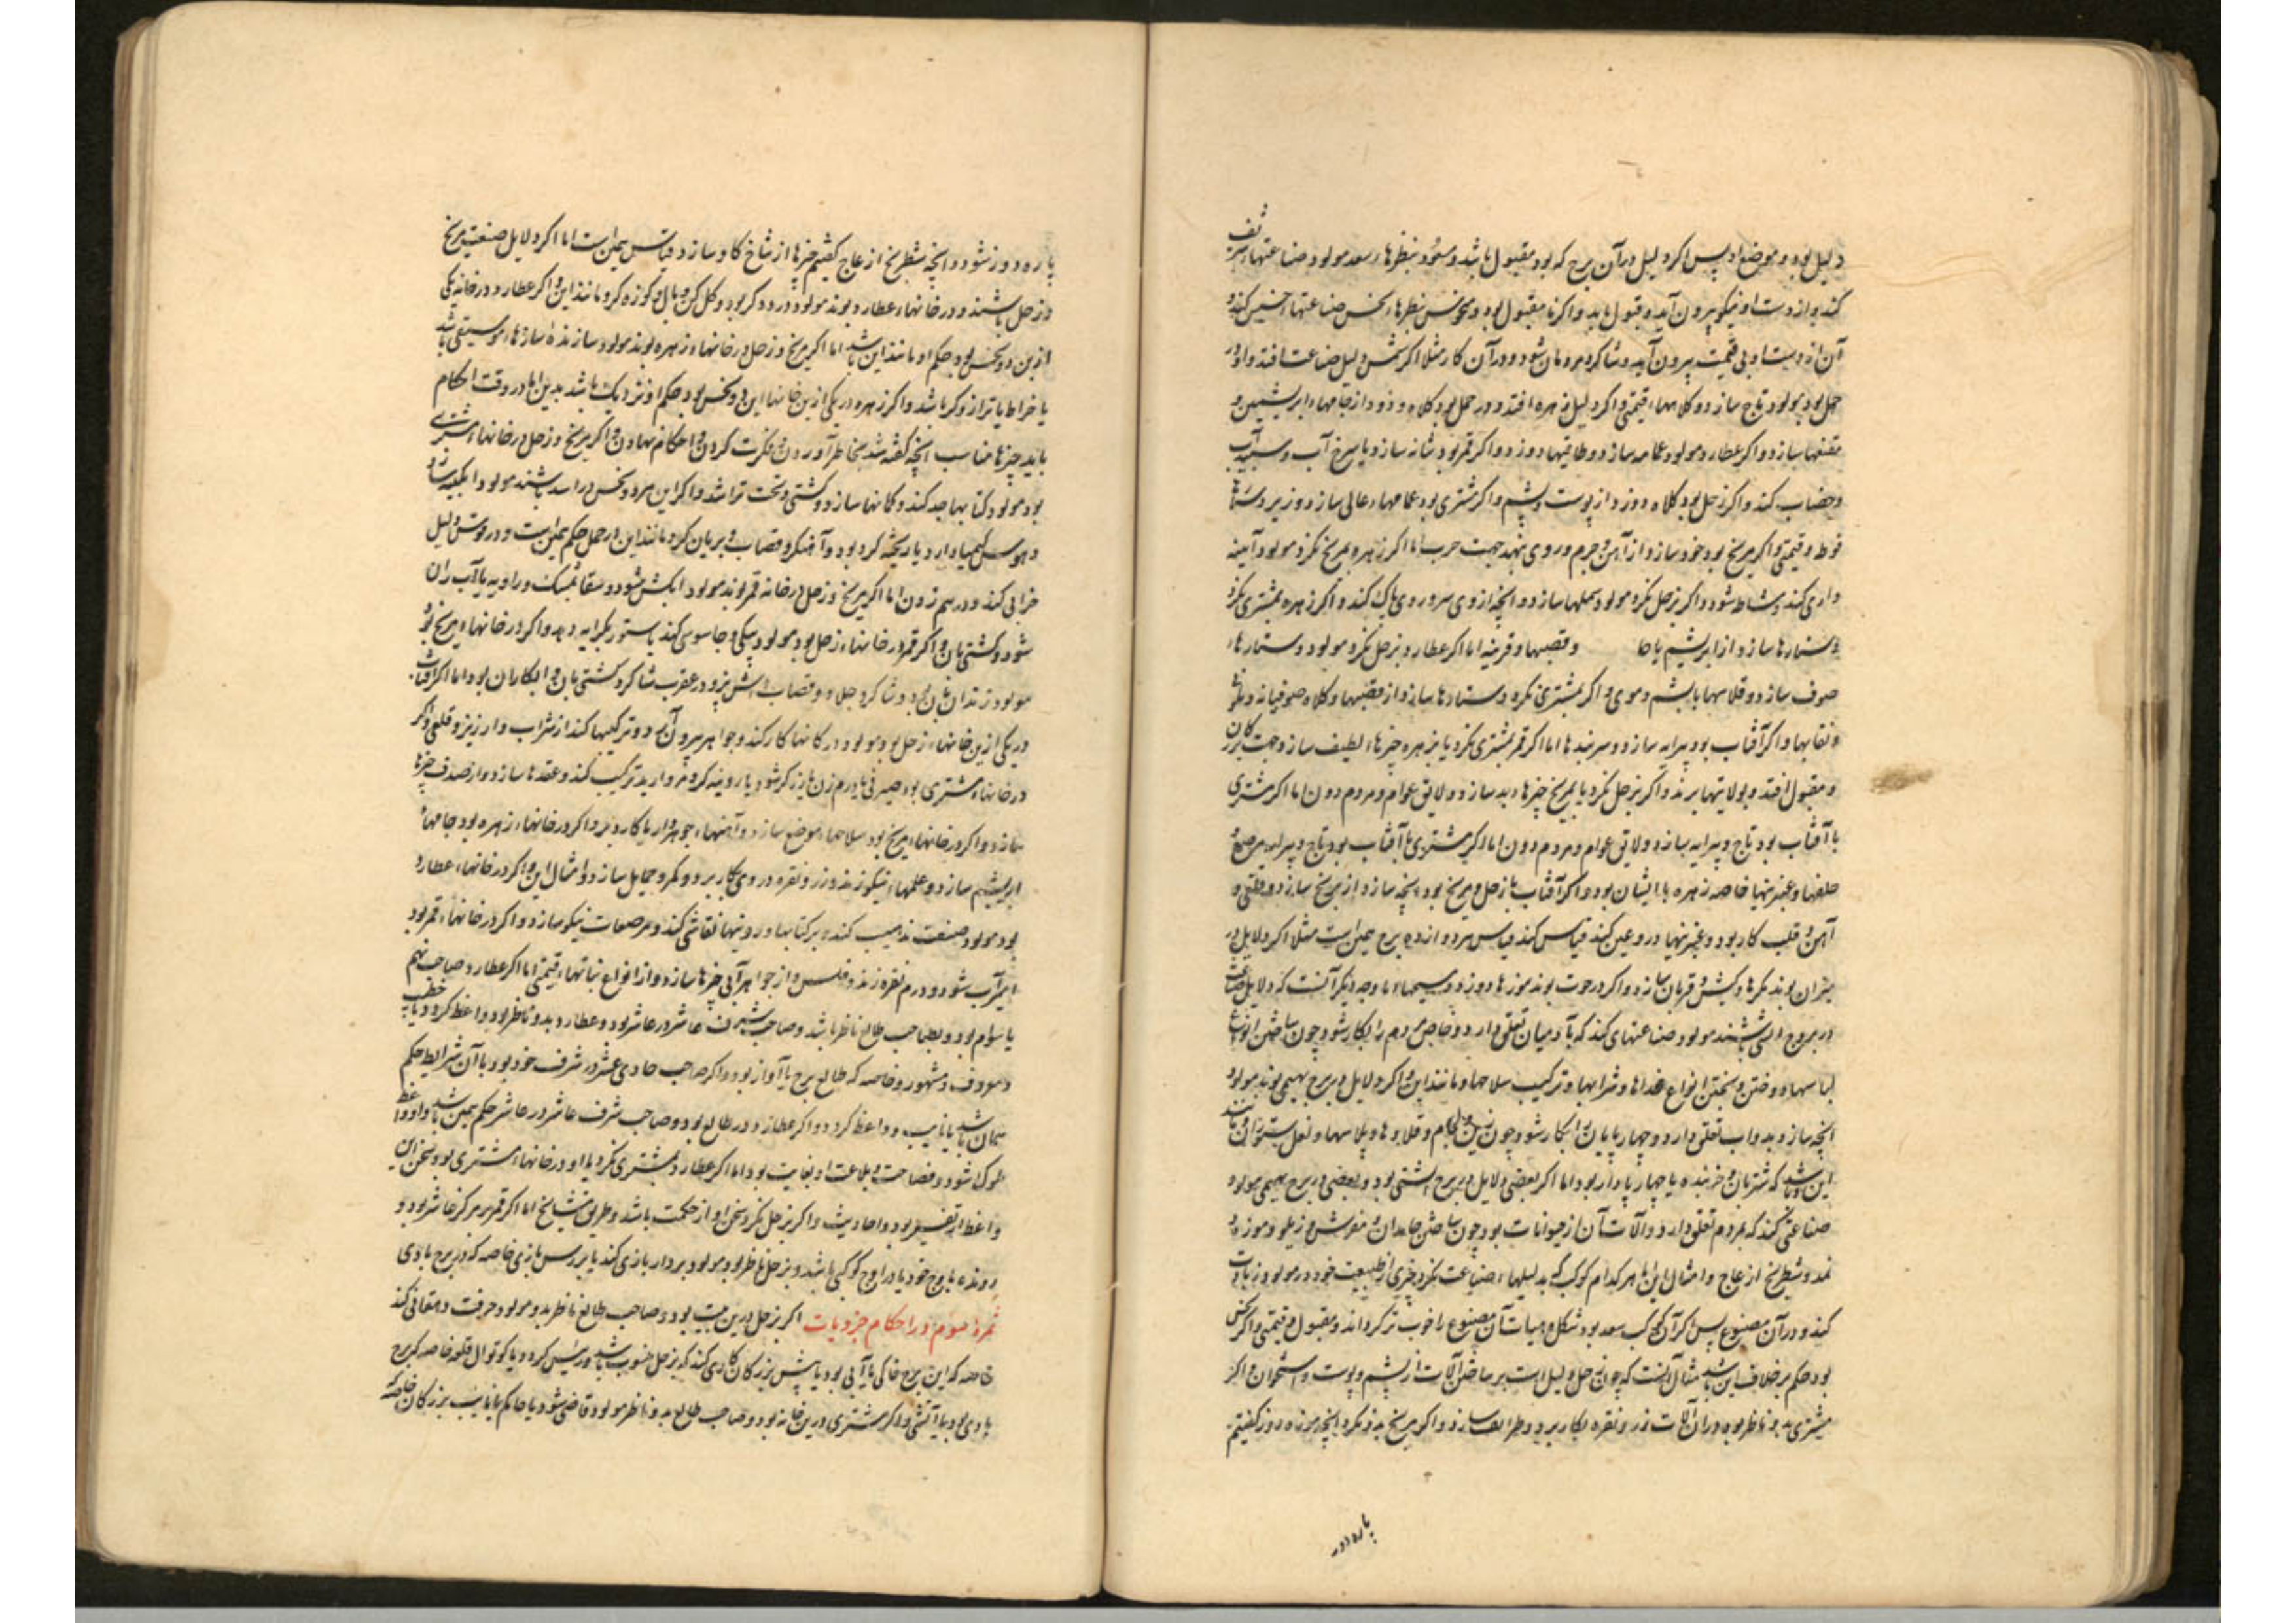 دلیل بود و موضع او پس اگر دلیل در آن برج که بود مقبول باشد و مسعود بنظرهاء سعد مولود صناعتهاء شریف
کند و از دست او نیکو بیرون آید و قبول یابد و اگر نا مقبول بود و منحوس بنظرهاء نحس صناعتهاء خسیس کند و
آن از دست او بی قیمت بیرون آید و شاکرد مردمان شود و در آن کار مثلا اگر شمس دلیل صناعت افتد و او در
حمل بود مولود تاج سازد و کلاهها قیمتی و اگر دلیل زهره افتد و در حمل بود کلاه دوزد از جامهاء ابریشمین و
مقنعها سازد و اگر عطارد مولود عمامه سازد و طاقیها دوزد و اگر قمر بود شانه سازد یا سرخ آب و سپید آب
و خضاب کند و اگر زحل بود کلاه دوزد از پوست و پشم و اگر مشتری بود عمامهاء عالی سازد و زیر دستارها
فوطه و قیمتی و اگر مریخ بود خود سازد از آهن و جرم و روی بنهد جهت حرب اما اگر زهره بمریخ نکرد مولود آینه
داری کند و مشاطه شود و اگر بزحل نکرد مولود سملها سازد و آنچه از وی سر و روی پاک کند و اگر زهره بمشتری نکرد
دستارها سازد از ابریشم یا جا و قصبها و قرینه اما اگر عطارد بزحل نکرد مولود دستارهاء
صوف سازد و قلاسها با پشم و موی و اگر بمشتری نکرد دستارها سازد از قصبها و کلاه صوفیانه و
نقابها و اگر آفتاب بود پیرایه سازد و سربندها اما اگر قمر بمشتری نکرد یا بزهره چیزهاء لطیف سازد جهت بزرکان
و مقبول افتد و بولایتها برند و اگر بزحل نکرد یا بمریخ چیزها بد سازد و لایق عوام و مردم دون اما اگر مشتری
با آفتاب بود تاج و پیرایه سازد و لایق عوام و مردم دون اما اگر مشتری با آفتاب بود تاج و پیرایه مرصع
خاصه زهره با ایشان بود و اگر آفتاب با زحل و مریخ بود آنچه سازد از برنج سازد و قلعی و
آهن و قلب کار بود و قیاس کند قیاس هر دوازده برج همین است مثلا اگر دلایل در
میزان بوند کمرها و کیش و قربان سازد و اگر در حوت بوند موزها دوزد اما وجه دیکر آنست که دلایل صناعت
در برج انسی باشند مولود صناعتهای کند که بآدمیان تعلق دارد و خاص مردم را بکار شود چون ساختن انواع
لباسها و دوختن و پختن انواع غذاها و شرابها و ترکیب سلاحها و مانند این و اگر دلایل در برج بهیمی بوند مولود
آنچه سازد بدواب تعلق دارد و چهارپایان را بکار شود چون زین و لجام و قلادها و پلاسها و نعل ستوران و مانند
این باشد که شتربان و خربنده یا چهارپادار بود اما اگر بعضی دلایل در برج انسی بود و بعضی در برج بهیمی مولود
صناعتی کند که بمردم تعلق دارد و آلات آن از حیوانات بود چون ساختن جامدان و مفرش و زیلو و موزه و
نمد و شطرنج از عاج و امثال این اما هر کدام کوکب که بدلیلهاء صناعت نکرد چیزی از طبیعت خود در مولود زیادت
کند و در آن مصنوع پس اگر آن کوکب سعد بود شکل و هیات آن مصنوع را خوب تر کرداند و مقبول و قیمتی و اگر نحس
بود حکم بر خلاف این باشد مثال آنست که چون زحل دلیل است بر ساختن آلات از پشم و پوست و استخوان و اگر
مشتری بدو ناظر بود در آن آلات زر و نقره بکار برد و ظرایف سازد و اگر مریخ بدو نکرد آنچه موزه دوز کفتیم
پاره دوز
پاره دوز شود و آنچه شطرنج از عاج کفتیم چیزها از شاخ کاو سازد و قیاس همین است اما اگر دلایل صنعت مریخ
و زحل باشند و در خانهاء عطارد بوند مولود درودکر بود و کل کن و بال و کوزه کر و مانند این و اگر عطارد در خانه یکی
ازین دو نحس بود حکم او مانند این باشد اما اگر مریخ و زحل در خانهاء زهره بوند مولود سازنده سازهاء موسیقی باشد
یا خراط یا ترازوکر باشد و اگر زهره در یکی از خانهاء این دو نحس بود حکم او نزدیک باشد بدین اما در وقت احکام
باید چیزها مناسب آنچه کفته شد بخاطر آوردن و فکرت کردن و احکام نهادن و اگر مریخ و زحل در خانهاء مشتری
بود مولود کتابها جلد کند و کمانها سازد و کشتی و تخت تراشد و اگر این هر دو نحس در اسد باشند مولود آبکینه سازد
و هوس کیمیا دارد یا ریخته کر بود و آهنکر و قصاب و بریان کر و مانند این در حمل حکم همین است و در قوس دلیل
خرابی کند و درم زدن اما اگر مریخ و زحل در خانه قمر بوند مولود آبکش شود و سقا بمشک و راویه یا آب ران
شود و کشتی بان و اگر قمر در خانهاء زحل بود مولود پیکی و جاسوسی کند یا ستور بکرایه دهد و اگر در خانهاء مریخ بود
مولود زندان بان بود و شاکرد جلاد و قصاب و آشپز و در عقرب شاکرد کشتی بان و آبکاران بود اما اگر آفتاب
در یکی ازین خانهاء زحل بود مولود در کانها کار کند و جواهر بیرون آرد و ترکیبها کند از شراب و ارزیز و قلعی و اگر
در خانهاء مشتری بود صیرفی یا درم زن یا زرکر شود یا مروارید ترکیب کند و عقدها سازد و از صدف چیزها
سازد و اگر در خانهاء مریخ بود سلاحهاء موضع سازد و آهنهاء جوهردار بکار برد و اگر در خانهاء زهره بود جامهاء
ابریشم سازد و علمهاء نیکو زند و زر و نقره در وی بکار برد و کمر و حمایل سازد و امثال این و اگر در خانهاء عطارد
بود مولود صنعت تذهیب کند و بر کتابها و رویها نقاشی کند و مرصعات نیکو سازد و اگر در خانهاء قمر بود
امیر آب شود و درم نقره زند و فلس و از جواهر آبی چیزها سازد و از انواع نباتهاء قیمتی اما اگر عطارد صاحب نهم
یا سوم بود و بصاحب طالع ناظر باشد و صاحب شرف عاشر در عاشر بود و عطارد بدو ناظر بود واعظ کردد یا خطیب
و معروف و مشهور و خاصه که طالع برج با آواز بود و اگر صاحب حادی عشر در شرف خود بود با آن شرایط حکم
همان باشد یا نایب و واعظ کردد و اگر عطارد در طالع بود و صاحب شرف عاشر در عاشر حکم همین باشد و او واعظ
ملوک شود و فصاحت و بلاغت او بغایت بود اما اگر عطارد بمشتری نکرد یا او در خانهاء مشتری بود سخن این
واعظ از تفسیر بود و احادیث و اگر بزحل نکرد سخن او از حکمت باشد و طریق مشایخ اما اگر قمر بر مرکز عاشر بود و
رونده باوج خود یا در اوج کوکبی باشد و بزحل ناظر بود مولود بر دار بازی کند یا بر رسن بازی خاصه که در برج بادی
ثمره سوم در احکام جزویات اگر زحل درین بیت بود و صاحب طالع ناظر بدو مولود حرفت دهقانی کند
خاصه که این برج خاکی یا آبی بود یا پیش بزرکان کاری کند که بزحل منسوب باشد و رئیس کردد یا کوتوال قلعه خاصه که برج
بادی بود یا آتشی و اگر مشتری درین خانه بود و صاحب طالع بدو ناظر مولود قاضی شود یا حاکم یا نایب بزرکان خاصه که